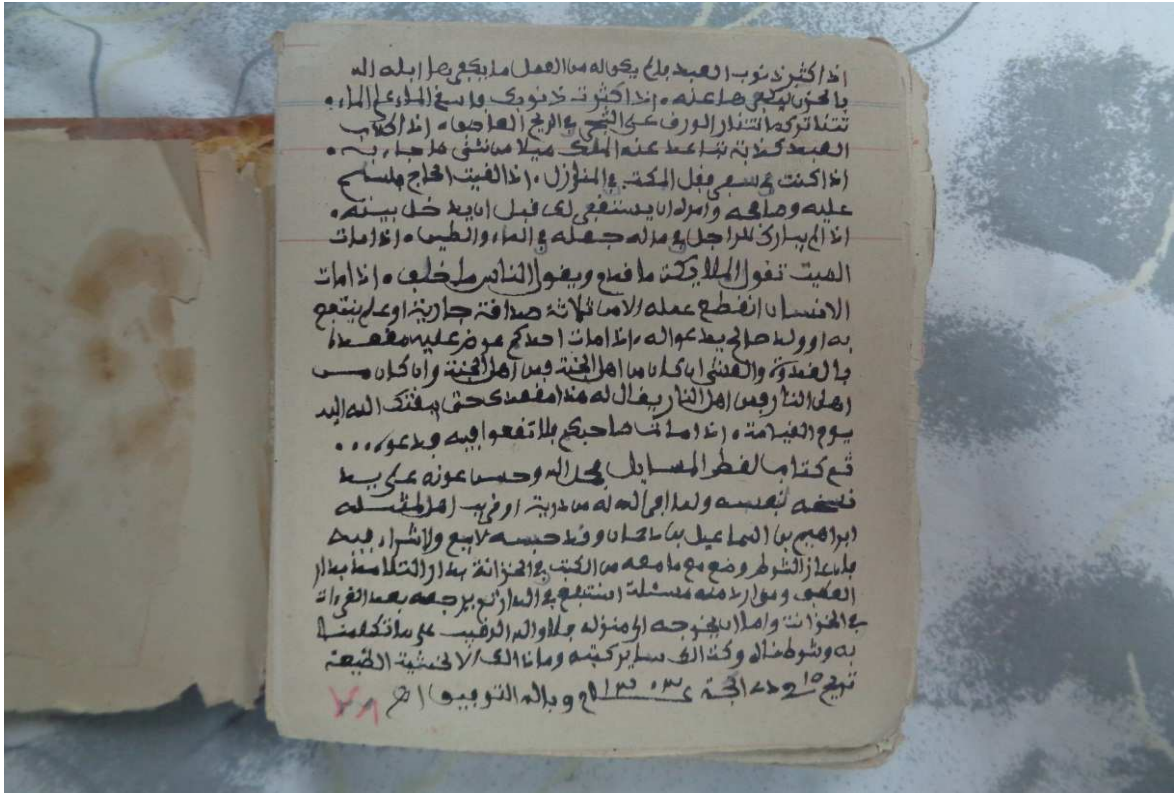 اذا كثرت ذنوب العبد ولم يكن له من العمل ما يكفرها ابتلاه الله
بالحزن ليكفرها عنه ۰ اذا كثرت ذنوبك فاسق الماء على الماء ۰
تتناثر كما يتناثر الورق على الشجر في الريح العاصف ۰ اذا كذب
العبد كذبة تباعد عنه الملك ميلا من نتن ما جاء به ۰
اذا كنت في سفر فقل المكث في المنازل ۰ اذا لقيت الحاج فسلم
عليه وصافحه وامره ان يستغفر لك قبل ان يدخل بيته ۰
اذا لم يبارك للرجل في ماله جعله في الماء والطين ۰ اذا مات
الميت تقول الملايكة ما قدم ويقول الناس ما خلف ۰ اذا مات
الانسان انقطع عمله الا من ثلاثة صدقة جارية او علم ينتفع
به او ولد صالح يدعوا له ۰ اذا مات احدكم عرض عليه مقعده
بالغدوة والعشي ان كان من اهل الجنة فمن اهل الجنة وان كان من
اهل النار فمن اهل النار يقال له هذا مقعدك حتى يبعثك الله اليه
يوم القيامة ۰ اذا مات صاحبكم فلا تقعوا فيه ودعوه ۰۰۰
تم كتاب المسايل بحمد الله وحسن عونه على يد
نسخه لنفسه ولمن
ابراهيم بن اسماعيل بن وقد حبسه لا بيع ولا شراء فيه
الشوط وضع مع ما معه من الكتب في الخزانة بدار التلاميذ بدار
ومن اراد منه مسئلة في الدار ثم يرجعه بعد القراءة
في الخزانة واما ان يخرجه الى منزله فلا والله الرقيب على ما تكلمنا
به وشرطناه وكذالك ساير كتبه وماذالك الا لخشية الضيعة
ذي الحجة وبالله التوفيق اهـ